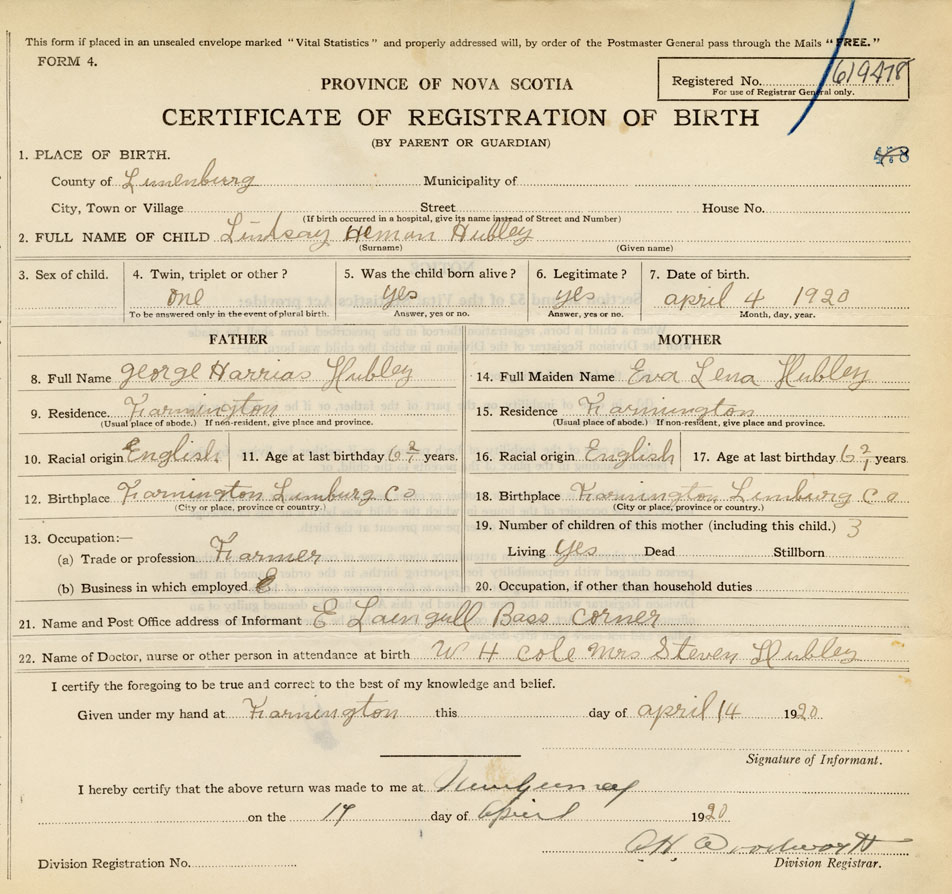 This form if placed in an unsealed envelope marked "Vital Statistics" and properly addressed will, by order of the Postmaster General pass through the Mails "FREE."
FORM 4.
Registered No. 619478
For use of Registrar General only.
PROVINCE OF NOVA SCOTIA
CERTIFICATE OF REGISTRATION OF BIRTH
(BY PARENT OR GUARDIAN)
1. PLACE OF BIRTH.
County of Lunenburg Municipality of
City, Town or Village Street House No.
(If birth occurred in a hospital, give its name instead of Street and Number)
2. FULL NAME OF CHILD Lindsay Heman Hubley
(Surname) (Given name)
3. Sex of child. 4. Twin, triplet or other? 5. Was the child born alive? 6. Legitimate? 7. Date of birth.
one yes yes april 4 1920
To be answered only in the event of plural birth. Answer, yes or no. Answer, yes or no. Month, day, year.
FATHER MOTHER
8. Full Name george Harrias Hubley 14. Full Maiden Name Eva Lena Hubley
9. Residence. Farmington 15. Residence Farmington
(Usual place of abode.) If non-resident, give place and province. (Usual place of abode.) If non-resident, give place and province.
10. Racial origin English 11. Age at last birthday years. 16. Racial origin English 17. Age at last birthday years.
12. Birthplace Farnington Limburg Co 18. Birthplace Farnington Limburg Co
(City or place, province or country.) (City or place, province or country.)
19. Number of children of this mother (including this child.) 3
13. Occupation:—
(a) Trade or profession Farmer Living Yes Dead Stillborn
(b) Business in which employed 20. Occupation, if other than household duties
21. Name and Post Office address of Informant E Bass corner
22. Name of Doctor, nurse or other person in attendance at birth W H cole Mrs Steven Hubley
I certify the foregoing to be true and correct to the best of my knowledge and belief.
Given under my hand at Farnington this day of april 14 1920
Signature of Informant.
I hereby certify that the above return was made to me at New Germany
on the 17 day of April 1920
Woodworth
Division Registration No. Division Registrar.